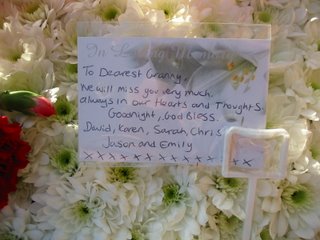 In Loving Memory
To Dearest Granny,
We will miss you very much.
always in our Hearts and Thoughts.
Goodnight, God Bless.
David, Karen, Sarah, Chris
Jason and Emily
x x x x x x x x x x x x x x